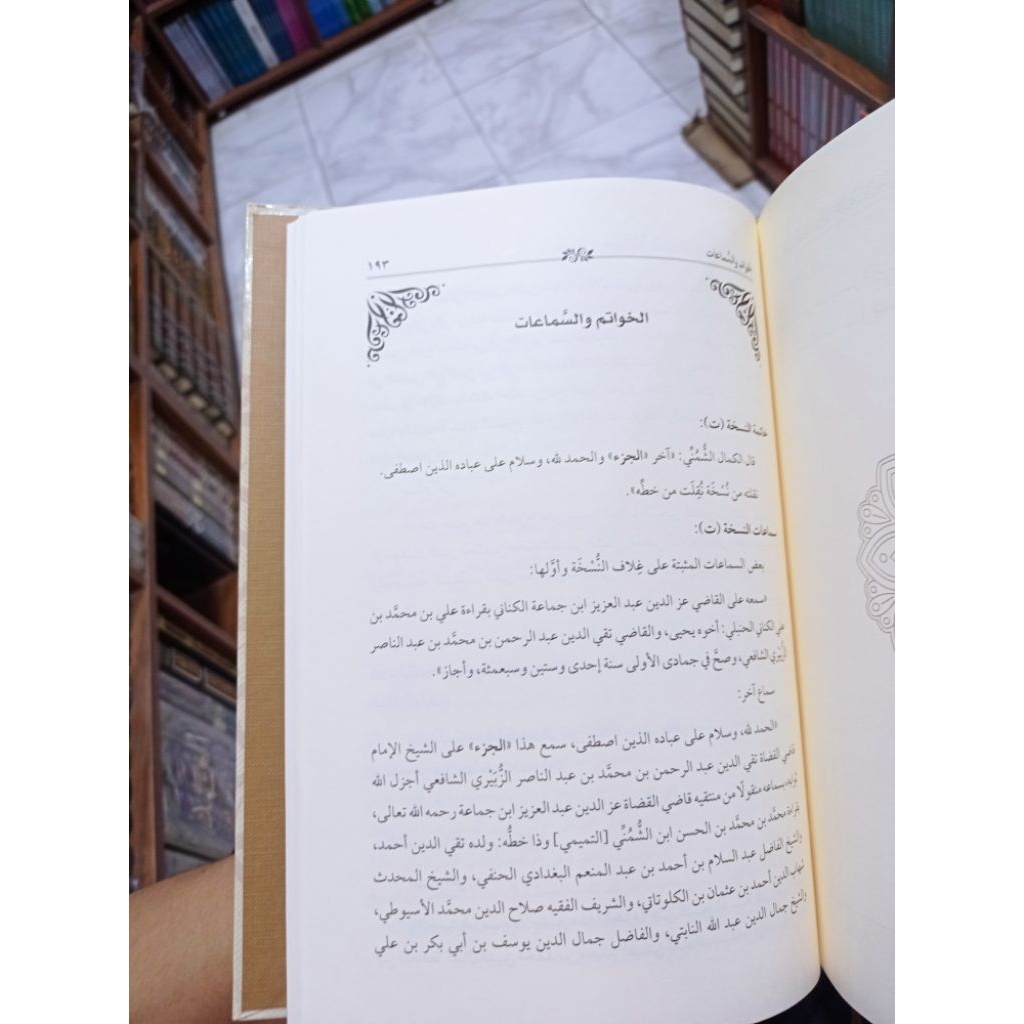 الخواتم والسَّماعات
١٩٣
الخواتم والسَّماعات
خاتمة النسخة (ت):
قال الكمال الشُّمُنِّي: «آخر «الجزء» والحمد لله، وسلام على عباده الذين اصطفى.
نقلته من نُسْخَة نُقِلَت من خطِّه».
سماعات النسخة (ت):
بعض السماعات المثبتة على غِلاف النُّسْخَة وأوَّلها:
«سمعه على القاضي عز الدين عبد العزيز ابن جماعة الكناني بقراءة علي بن محمَّد بن
علي الكناني الحنبلي: أخوه يحيى، والقاضي تقي الدين عبد الرحمن بن محمَّد بن عبد الناصر
الزُّبَيْري الشافعي، وصحَّ في جمادى الأولى سنة إحدى وستين وسبعمئة، وأجاز».
سماع آخر:
«الحمد لله، وسلام على عباده الذين اصطفى، سمع هذا «الجزء» على الشيخ الإمام
قاضي القضاة تقي الدين عبد الرحمن بن محمَّد بن عبد الناصر الزُّبَيْري الشافعي أجزل الله
ثوابه، بسماعه منقولًا من منتقيه قاضي القضاة عز الدين عبد العزيز ابن جماعة رحمه الله تعالى،
بقراءة محمَّد بن محمَّد بن الحسن ابن الشُّمُنِّي [التميمي] وذا خطُّه: ولده تقي الدين أحمد،
والشيخ الفاضل عبد السلام بن أحمد بن عبد المنعم البغدادي الحنفي، والشيخ المحدث
شهاب الدين أحمد بن عثمان بن الكلوتاتي، والشريف الفقيه صلاح الدين محمَّد الأسيوطي،
والشيخ جمال الدين عبد الله النابتي، والفاضل جمال الدين يوسف بن أبي بكر بن علي